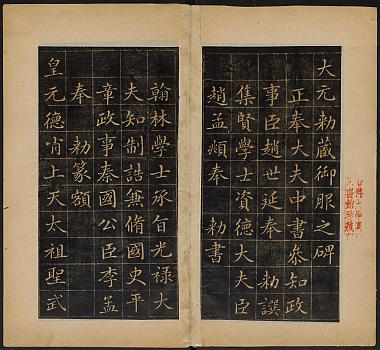 大元勑藏御服之碑
正奉大夫中書叅知政
事臣趙世延奉 勑譔
集賢學士資德大夫臣
趙孟頫奉 勑書
翰林學士承旨光祿大
夫知制誥兼脩國史平
章政事秦國公臣李孟
奉 勑篆額
皇元德肖上天太祖聖武